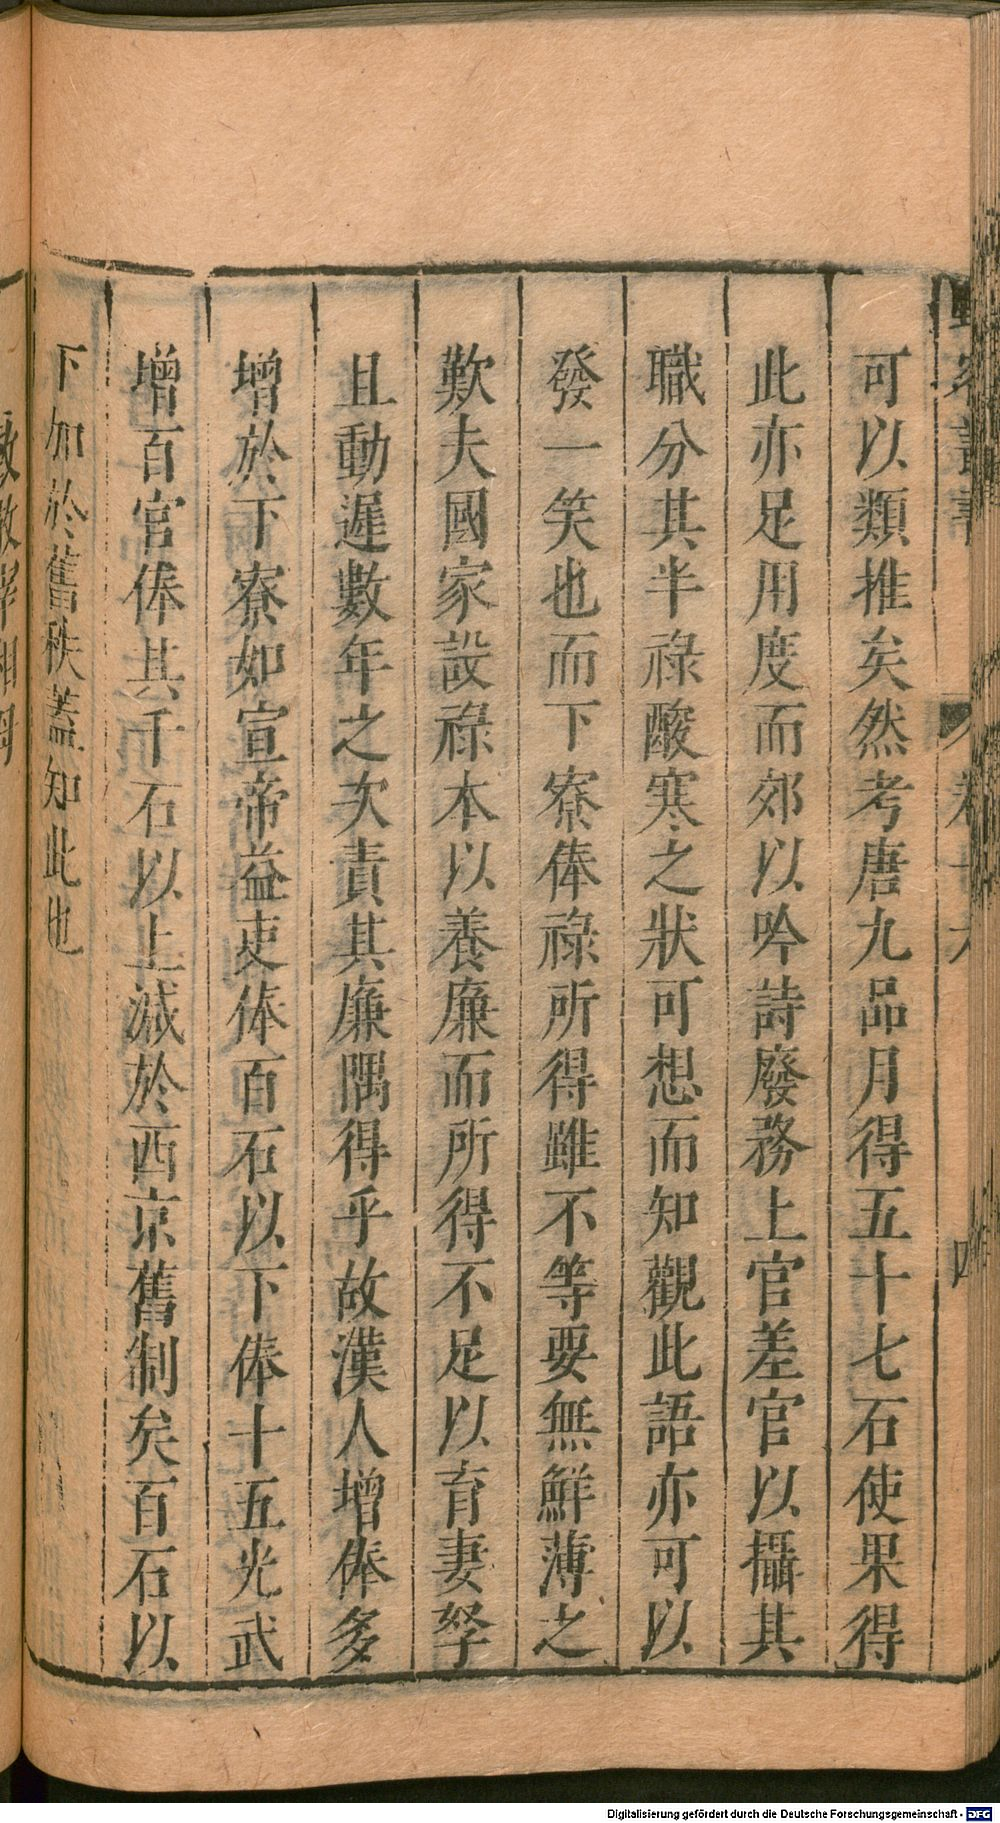 可以類推矣然考唐九品月得五十七石使果得
此亦足用度而郊以吟詩廢務上官差官以攝其
職分其半祿酸寒之狀可想而知觀此語亦可以
發一笑也而下寮俸祿所得雖不等要無鮮薄之
歎夫國家設祿本以養廉而所得不足以育妻孥
且動遲數年之次責其廉隅得乎故漢人增俸多
增於下寮如宣帝益吏俸百石以下俸十五光武
增百官俸其千石以上減於西京舊制矣百石以
下加於舊秩蓋知此也
Digitalisierung gefördert durch die Deutsche Forschungsgemeinschaft - DFG